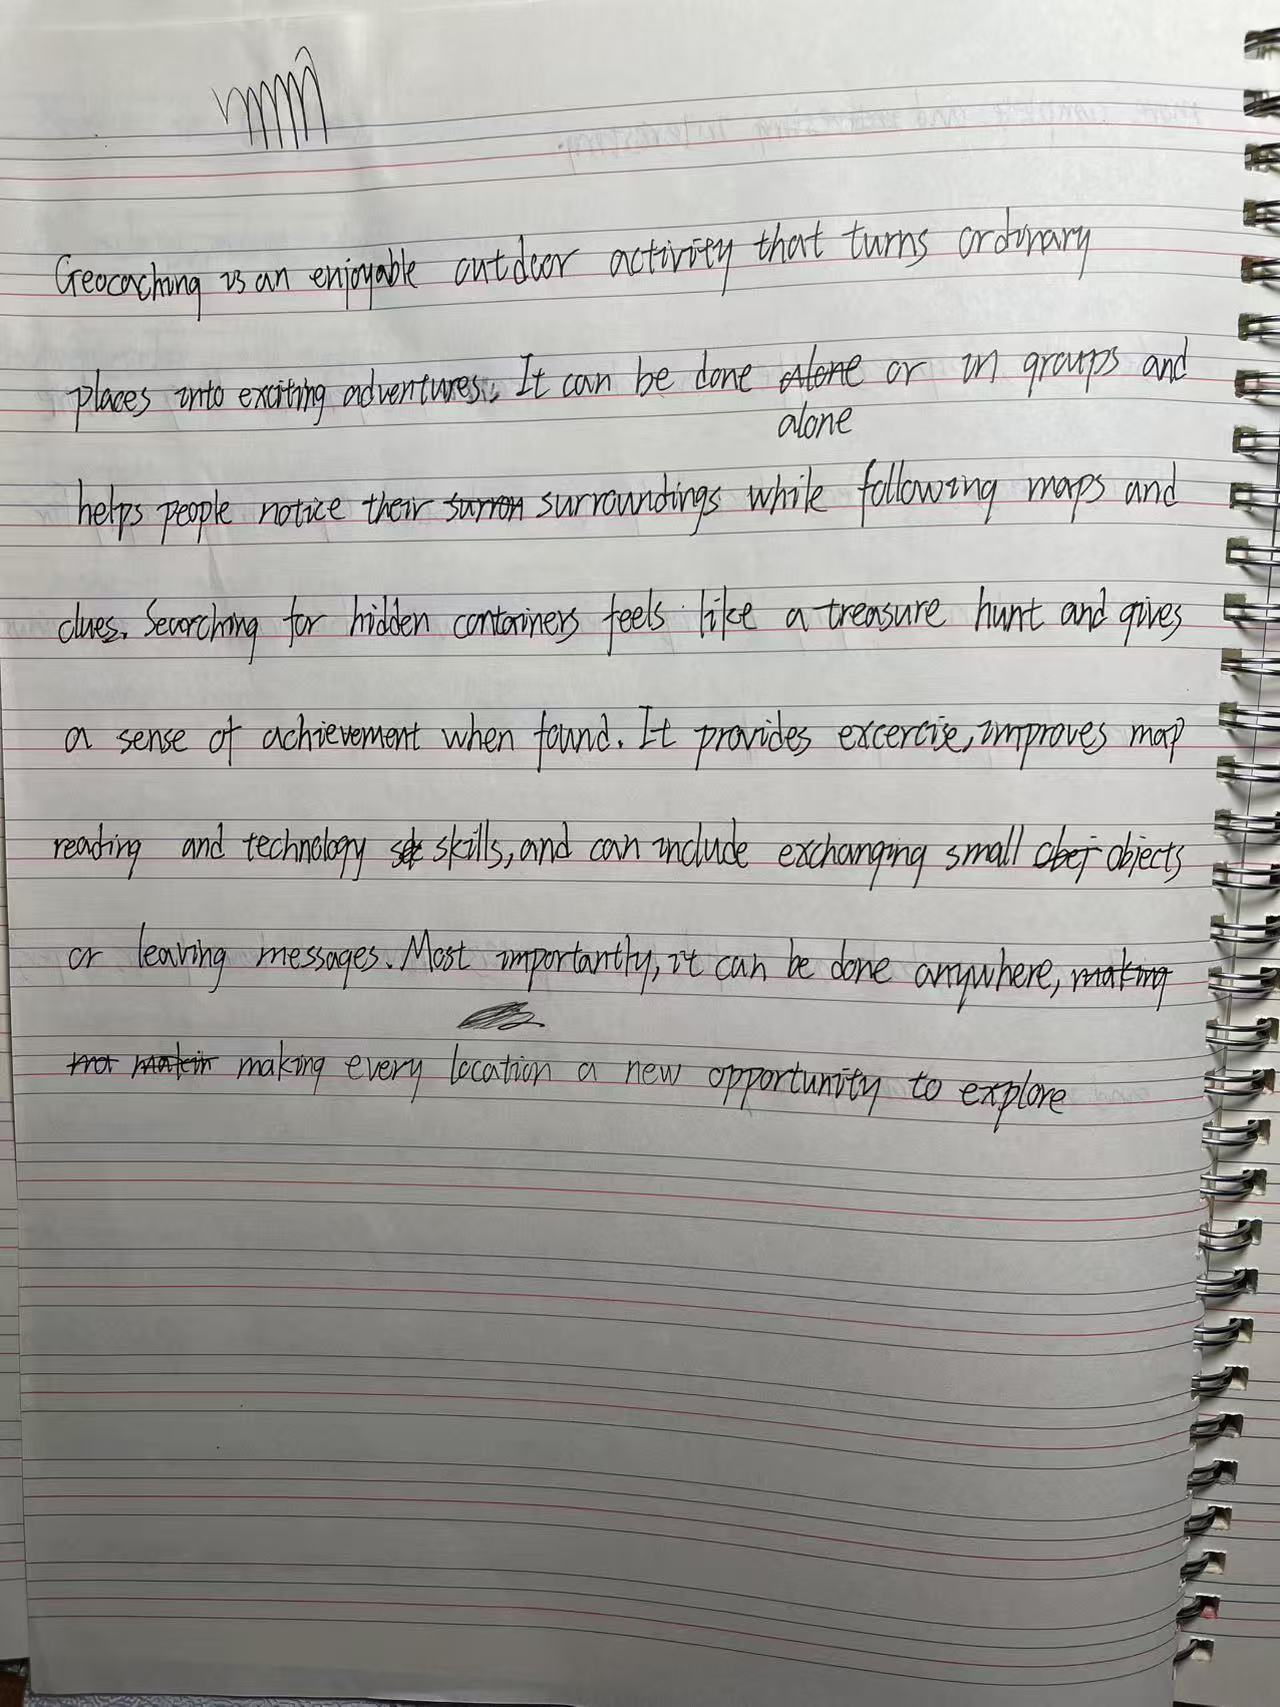 Geocaching is an enjoyable outdoor activity that turns ordinary
places into exciting adventures. It can be done alone or in groups and
alone
helps people notice their surron surroundings while following maps and
clues. Searching for hidden containers feels like a treasure hunt and gives
a sense of achievement when found. It provides excercise, improves map
reading and technology skills, and can include exchanging small obej objects
or leaving messages. Most importantly, it can be done anywhere, making
makin making every location a new opportunity to explore